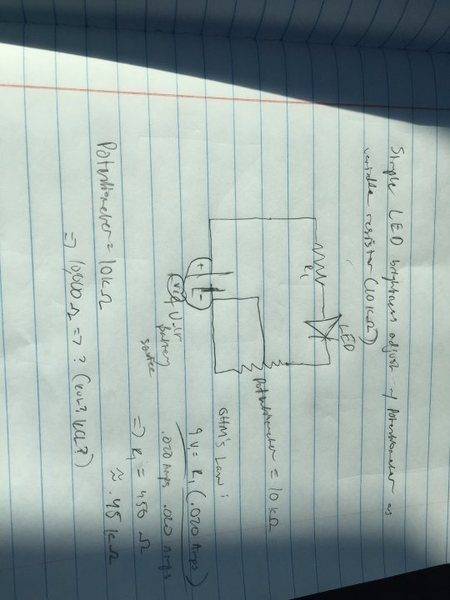 Simple LED brightness adjust w/ Potentiometer as
variable resistor (10KΩ)
R1
LED
+
-
9V
battery
source
Potentiometer = 10KΩ
OHM's Law:
9V = R1 (.020 Amps)
.020 Amps .020 Amps
=> R1 = 450 Ω
≈ .45 kΩ
Potentiometer = 10KΩ
=> 10,000 Ω => ?